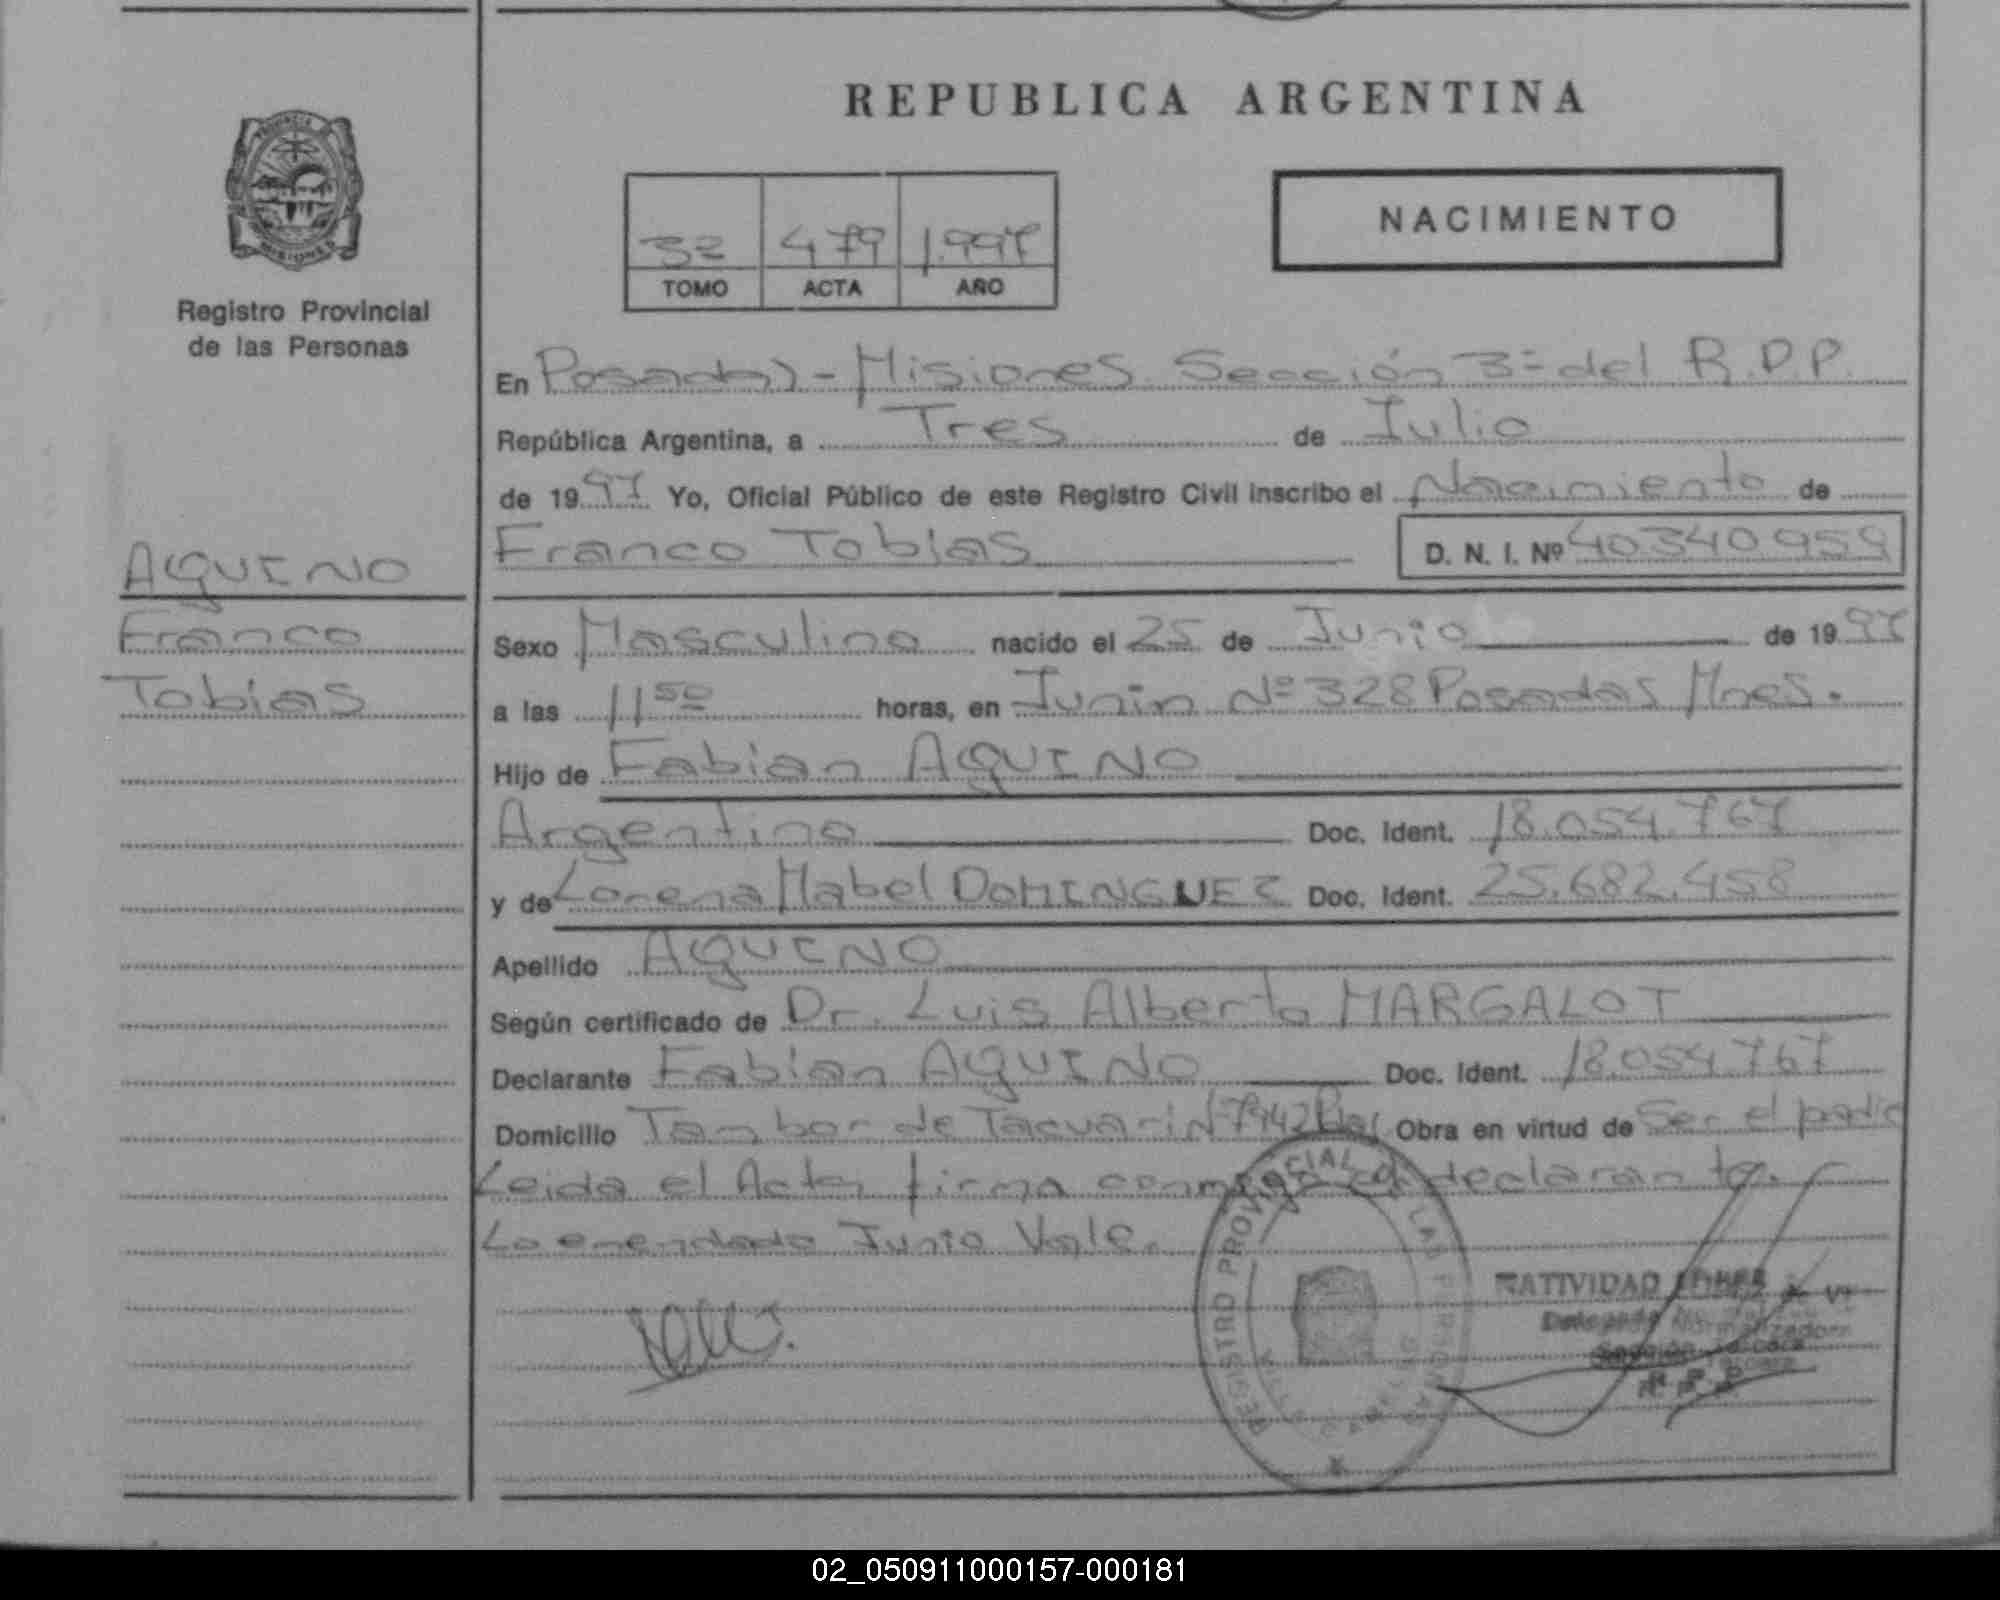 REPUBLICA ARGENTINA
PROVINCIA
MISIONES
Registro Provincial
de las Personas
NACIMIENTO
32 479 1.997
TOMO ACTA AÑO
En Posadas - Misiones. Sección 3ª del R.P.P.
República Argentina, a Tres de Julio
de 1997 Yo, Oficial Público de este Registro Civil inscribo el Nacimiento de
Franco Tobias D. N. I. Nº 40340959
AQUINO
Franco
Tobias
Sexo Masculino nacido el 25 de Junio de 1997
a las 11 50 horas, en Junin Nº 328 Posadas Mnes.
Hijo de Fabian AQUINO
Argentino Doc. Ident. 18.054.767
y de Lorena Mabel DOMINGUEZ Doc. Ident. 25.682.458
Apellido AQUINO
Según certificado de Dr. Luis Alberto MARGALOT
Declarante Fabian AQUINO Doc. Ident. 18.054.767
Domicilio Tambor de Tacuari Nº 7942 Obra en virtud de Ser el padre
Leida el Acta firma conmigo el declarante.
Lo enmendado Junio Vale.
REGISTRO PROVINCIAL DE LAS PERSONAS
NATIVIDAD
02_050911000157-000181